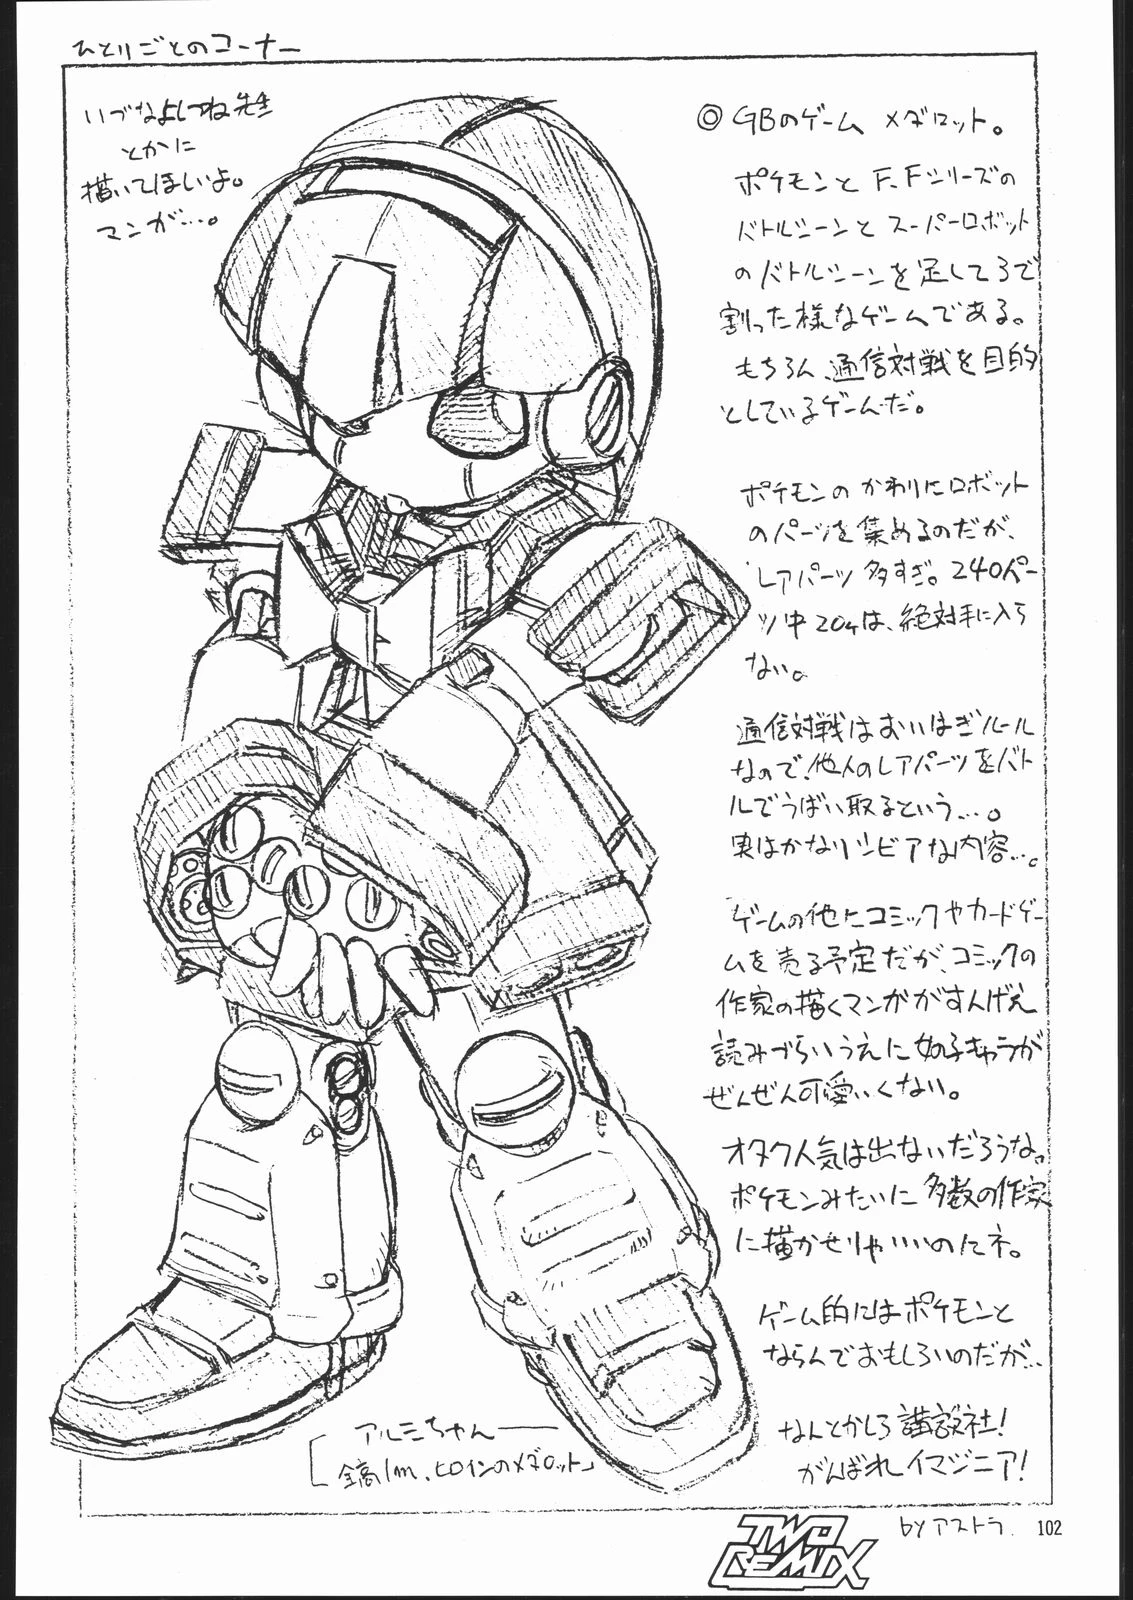 ひとりごとのコーナー
いづなよしつね先生
とかに
描いてほしいよ。
マンガ…。
◎GBのゲーム メダロット。
ポケモンと F.Fシリーズの
バトルシーンと スーパーロボット
のバトルシーンを足して3で
割った様なゲームである。
もちろん、通信対戦を目的
としているゲームだ。
ポケモンの かわりにロボット
のパーツを集めるのだが、
レアパーツ 多すぎ。240パー
ツ中204は、絶対手に入ら
ない。
通信対戦はおいはぎルール
なので、他人のレアパーツをバト
ルでうばい取るという…。
実はかなりシビアな内容…。
ゲームの他にコミックやカードゲー
ムを売る予定だが、コミックの
作家の描くマンガがすんげえ
読みづらいうえに 女の子キャラが
ぜんぜん可愛いくない。
オタク人気は出ないだろうな。
ポケモンみたいに 多数の作家
に描かせりゃいいのにネ。
ゲーム的にはポケモンと
ならんでおもしろいのだが…
なんとかしろ 講談社!
がんばれ イマジニア!
アルミちゃん
1m、ヒロインのメダロット」
by アストラ. 102
TWO
REMIX